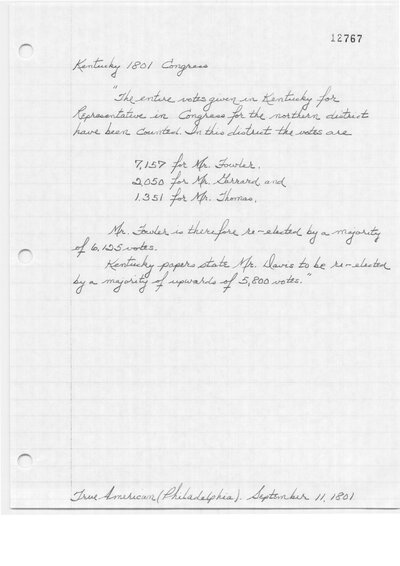 12767
Kentucky 1801 Congress
"The entire votes given in Kentucky for
Representative in Congress for the northern district
have been counted. In this district the votes are
7,157 for Mr. Fowler,
2,050 for Mr. Garrard, and
1,351 for Mr. Thomas.
Mr. Fowler is therefore re-elected by a majority
of 6,125 votes.
Kentucky papers state Mr. Davis to be re-elected
by a majority of upwards of 5,800 votes."
True American (Philadelphia). September 11, 1801